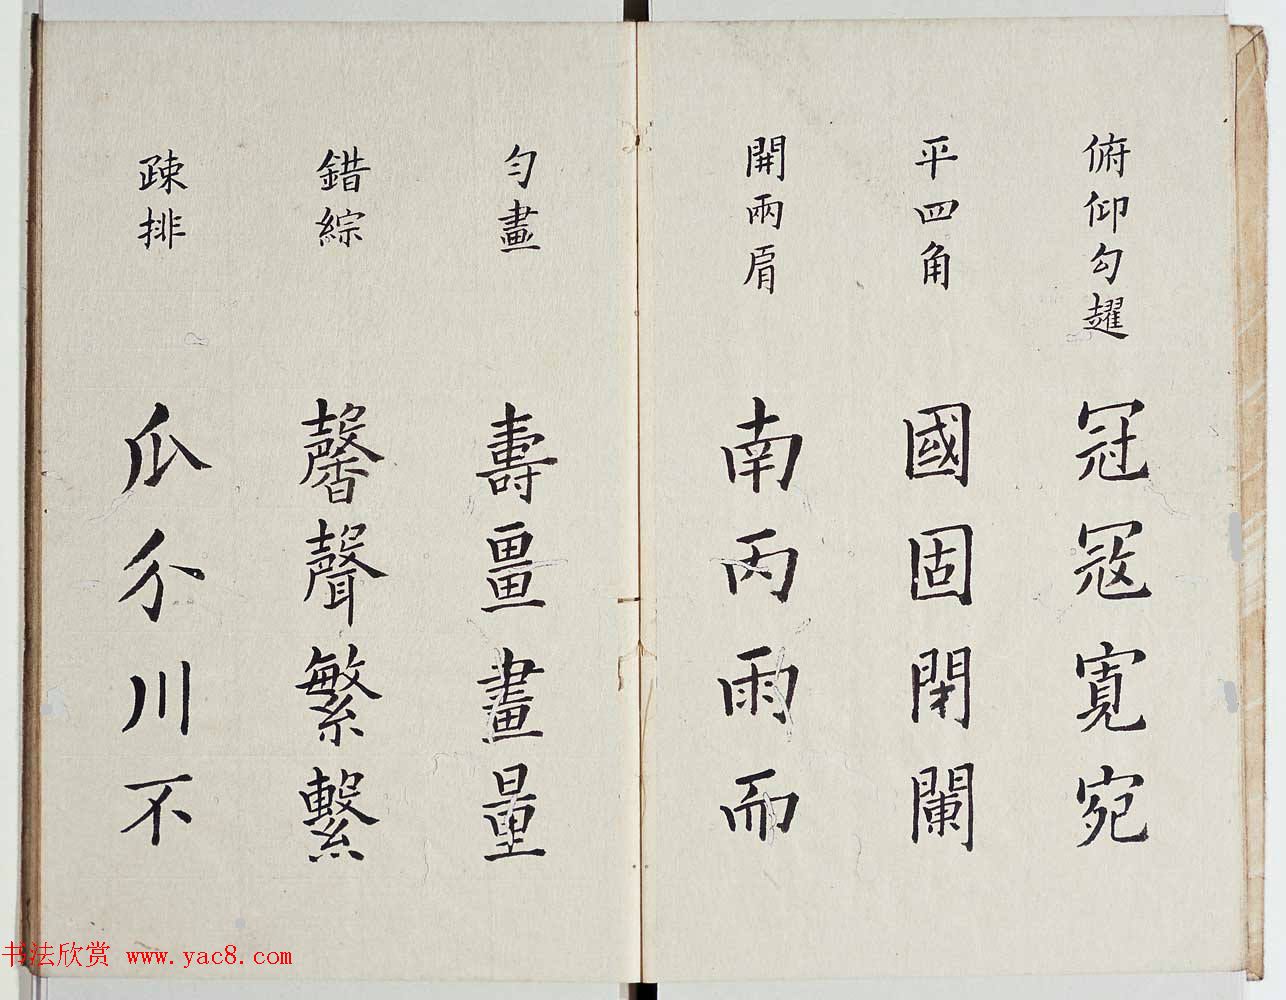 俯仰勾趯
冠冦寬宛
平四角
國固閉闌
開兩肩
南丙雨而
勻畫
壽畺畫量
錯綜
馨聲繁繫
疎排
瓜介川不
书法欣赏 www.yac8.com